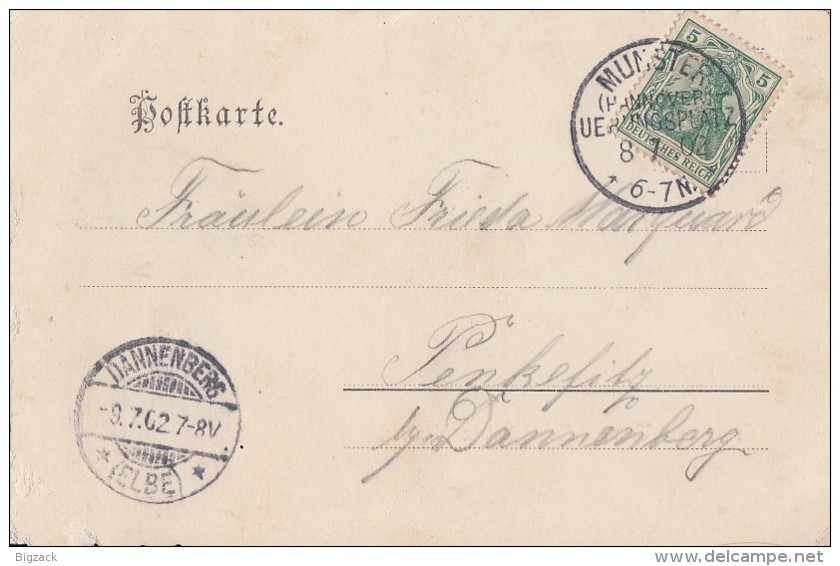 Postkarte.
5 5
DEUTSCHES REICH
MUNSTER
(HANNOVER)
UEBUNGSPLATZ
8 7 02
6-7N.
Fräulein Frieda Marquard
Penkefitz
by Dannenberg
DANNENBERG
-9.7.02 7-8V
* (ELBE) *
Bigzack
www.delcampe.net